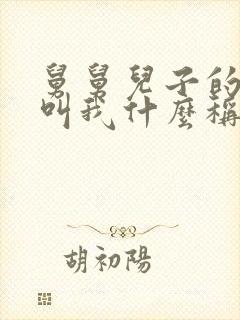 舅舅兒子的
叫我什麼稱
胡初陽